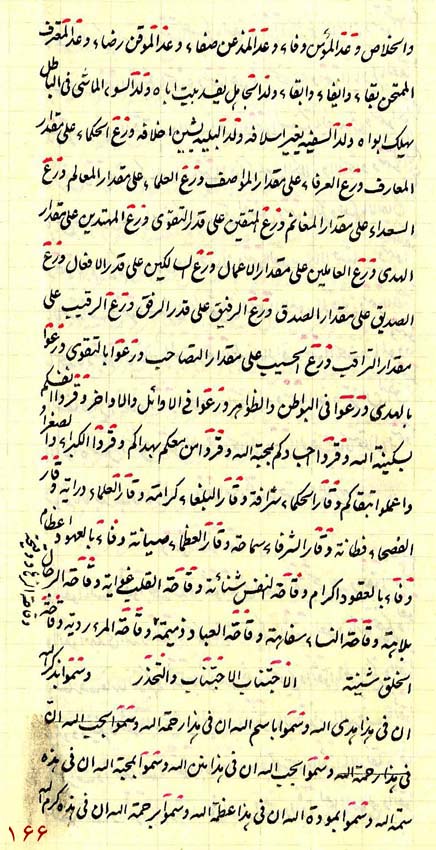 والخلاص و عند المؤنس وفاء وعند المذعن صفاء وعند الموقن رضاء وعند المعترف
الممتحن بقاء وابقاء وابقاء ولد الجاهل يفسد بيت اباه ولد السوء الماشى فى الباطل
يهلك ابواه ولد السفيه يغير اسلافه ولد البليه يشين اخلاقه وزع الحكماء على مقدار
المعارف وزع العرفاء على مقدار المواصف وزع العلماء على مقدار المعالم وزع
السعداء على مقدار المغانم وزع المتقين على قدر التقوى وزع المهتدين على مقدار
الهدى وزع العاملين على مقدار الاعمال وزع السالكين على قدر الافعال وزع
الصديق على مقدار الصدق وزع الرفيق على قدر الرفق وزع الرقيب على
مقدار التراقب وزع الحسيب على مقدار التصاحب وزعوا بالتقوى وزعوا
بالهدى وزعوا فى البواطن والظواهر وزعوا فى الاوائل والاواخر وقروا انفسكم
بسكينة الله وقروا احبادكم بمحبة الله وقروا من معكم بهداكم وقروا الكبراء والصغراء
واعملوا بتقاكم وقار الحكماء شرافة وقار البلغاء كرامة وقار العلماء دراية وقار
الفصحاء فطانة وقار الشرفاء سماحة وقار العظماء صيانة وفاء بالعهود اعظام
وفاء بالعقود اكرام وقاحة النفس شنائة وقاحة القلب غواية وقاحة الرجال
بلاهة وقاحة النساء سفاهة وقاحة العباد ذميمة وقاحة المرء ردية وقاحة
الخلق شينة الاجتناب الاجتناب والتحذر وسموا بذكر الله
ان فى هذا هدى الله وسموا باسم الله ان فى هذا رحمة الله وسموا بحب الله ان
فى هذا رحمة الله وسموا بحب الله ان فى هذا من الله وسموا بمحبة الله ان فى هذه
سمة الله وسموا بمودة الله ان فى هذا عظمة الله وسموا برحمة الله ان فى هذه كرم الله
۱۶۶